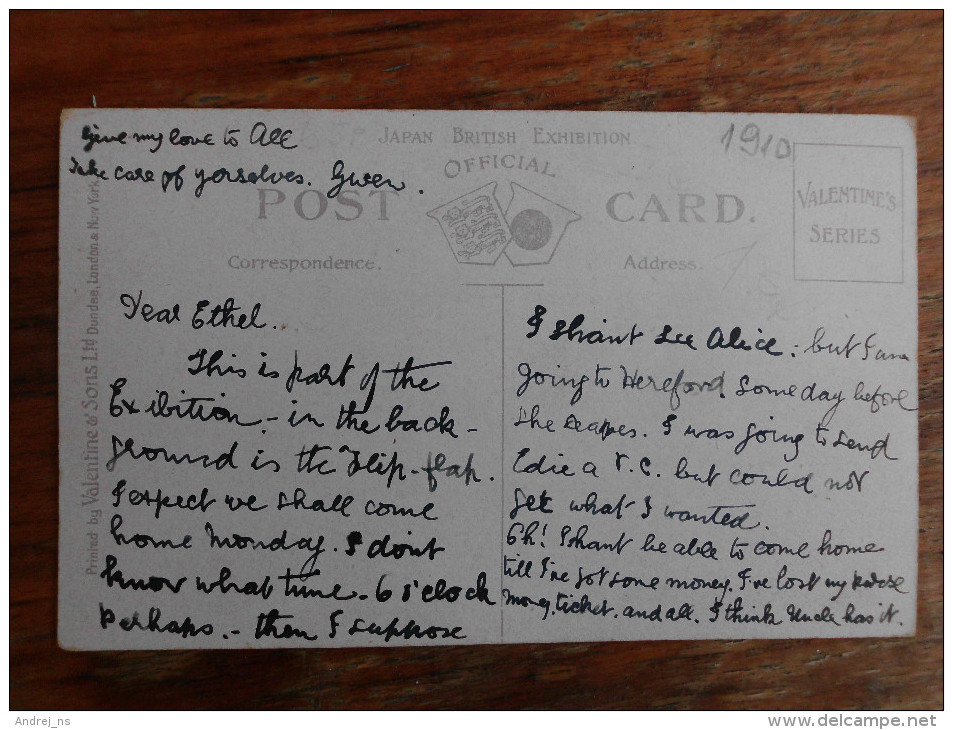 Give my love to All
Take care of yorselves. Gwen.
JAPAN BRITISH EXHIBITION
1910
OFFICIAL
POST CARD.
VALENTINE'S
SERIES
Correspondence.
Address.
Printed by Valentine & Sons Ltd Dundee, London & New York
Dear Ethel.
This is part of the
Exibition - in the back-
ground is the Flip-flap.
I expect we shall come
home Monday. I dont
know what time - 6 o'clock
perhaps. - then I suppose
I shant see Alice: but I am
going to Hereford some day before
she . I was going to send
Edie a P.C. but could not
get what I wanted.
Oh! I shant be able to come home
till I've got some money. I've lost my purse
money, ticket, and all. I think Uncle has it.
Andrej_ns
www.delcampe.net